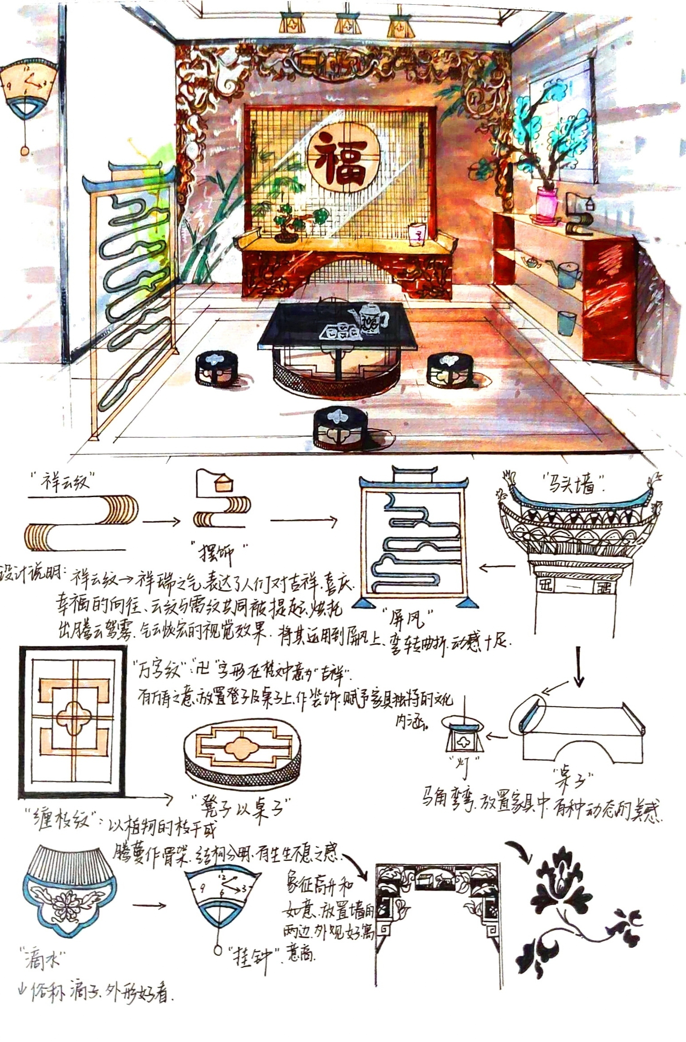 福
"祥云纹"
"摆饰"
"屏风"
"马头墙".
设计说明：祥云纹→祥瑞之气,表达了人们对吉祥、喜庆、
幸福的向往、云纹与雷纹共同被提起,烘托
出腾云驾雾、气云恢宏的视觉效果. 将其运用到屏风上、弯转曲折,动感十足.
"万字纹":"卍"字形在梵文中意为"吉祥".
有万有之意,放置凳子及桌子上,作装饰,赋予家具独特的文化
内涵。
"凳子以桌子"
"灯"
"桌子"
马角弯弯、放置家具中,有种动态的美感.
"缠枝纹":以植物的枝干或
腾蔓作骨架、结构分明,有生生不息之感、
象征高升和
如意、放置墙的
两边,外观好,寓
意高.
"滴水"
"挂钟"
俗称滴子、外形好看.
12
9
3
12
9
3